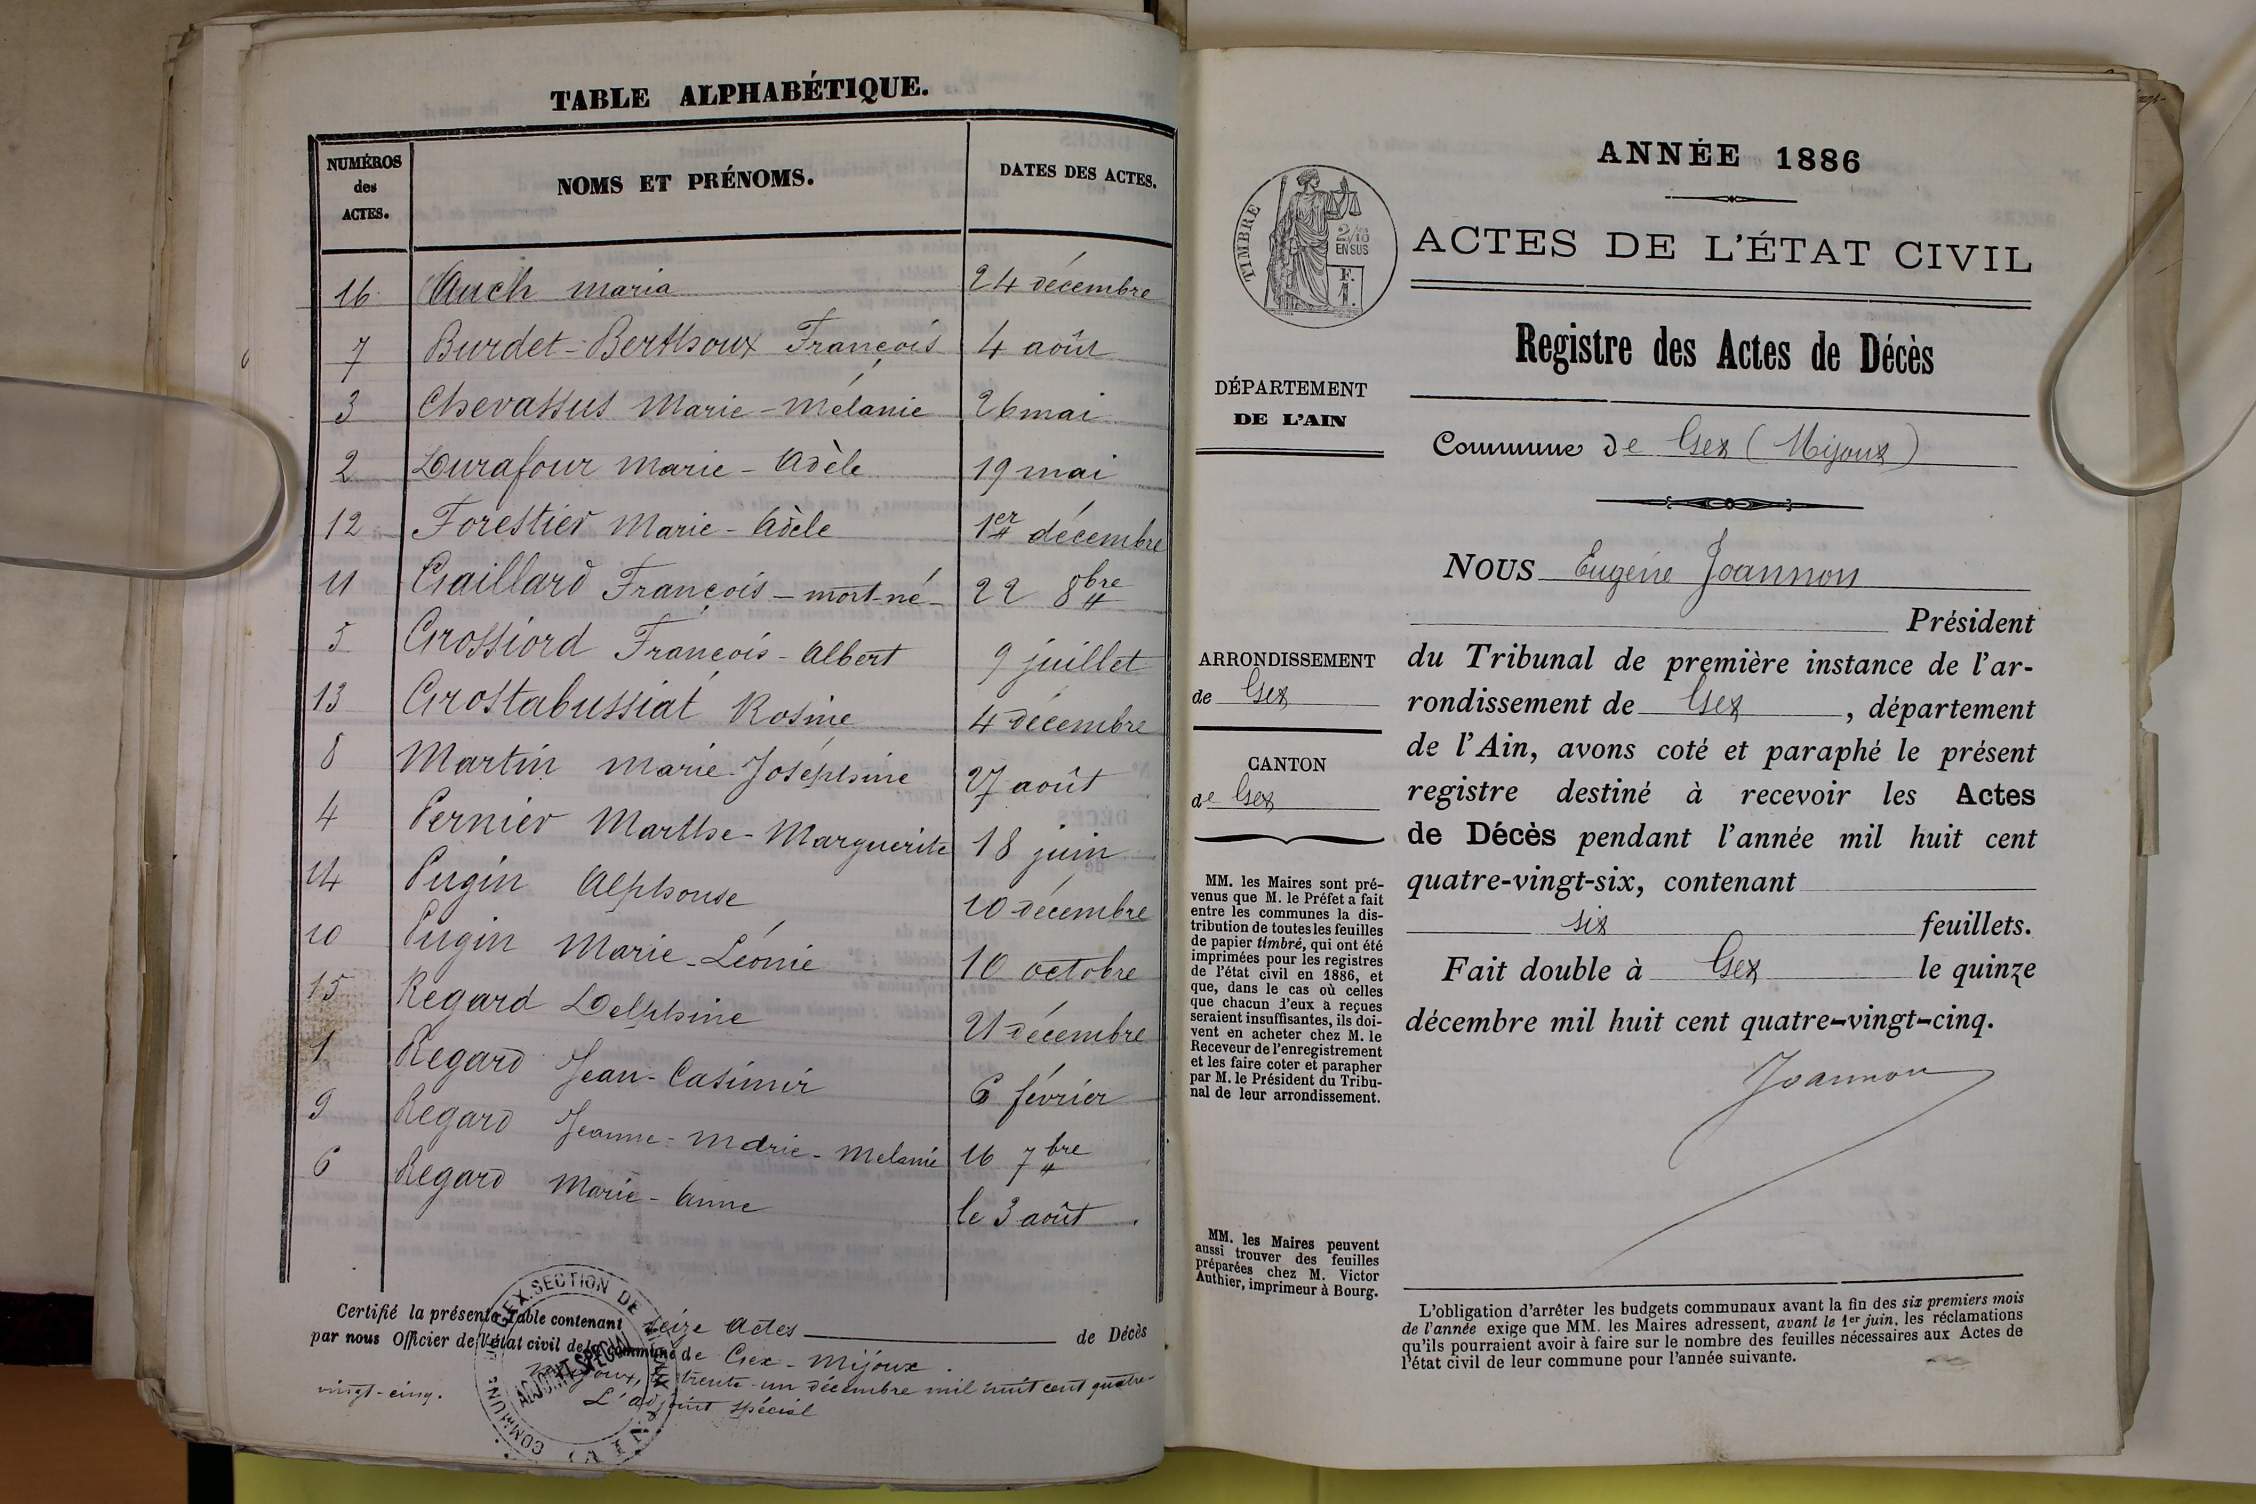 TABLE ALPHABÉTIQUE.
NUMÉROS des ACTES. NOMS ET PRÉNOMS. DATES DES ACTES.
16 Auch Maria 24 décembre
7 Burdet-Berthoux François 4 août
3 Chevassus Marie-Mélanie 26 mai
2 Durafour Marie-Adèle 19 mai
12 Forestier Marie-Adèle 1er décembre
11 Gaillard François-mort-né- 22 8bre
5 Grossiord François-Albert 9 juillet
13 Grostabussiat Rosine 4 décembre
8 Martin Marie-Joséphine 27 août
4 Pernier Marthe-Marguerite 18 juin
14 Pugin Alphonse 10 décembre
10 Pugin Marie-Léonie 10 octobre
15 Regard Delphine 21 décembre
1 Regard Jean-Casimir 6 février
9 Regard Jeanne-Marie-Melanie 16 7bre
6 Regard Marie-Anne le 3 août
Certifié la présente Table contenant seize Actes de Décès
par nous Officier de l'état civil de la commune de Gex-Mijoux.
Mijoux, trente-un décembre mil huit cent quatre-
vingt-cinq. L'adjoint spécial
COMMUNE DE GEX. SECTION DE MIJOUX (AIN)
ADJOINT SPÉCIAL
ANNÉE 1886
TIMBRE
2/10
EN SUS
ACTES DE L'ÉTAT CIVIL
Registre des Actes de Décès
DÉPARTEMENT
DE L'AIN
Commune de Gex (Mijoux)
NOUS Eugène Joannon
Président
du Tribunal de première instance de l'ar-
rondissement de Gex, département
de l'Ain, avons coté et paraphé le présent
registre destiné à recevoir les Actes
de Décès pendant l'année mil huit cent
quatre-vingt-six, contenant
six feuillets.
Fait double à Gex le quinze
décembre mil huit cent quatre-vingt-cinq.
Joannon
ARRONDISSEMENT
de Gex
CANTON
de Gex
MM. les Maires sont pré-
venus que M. le Préfet a fait
entre les communes la dis-
tribution de toutes les feuilles
de papier timbré, qui ont été
imprimées pour les registres
de l'état civil en 1886, et
que, dans le cas où celles
que chacun d'eux a reçues
seraient insuffisantes, ils doi-
vent en acheter chez M. le
Receveur de l'enregistrement
et les faire coter et parapher
par M. le Président du Tribu-
nal de leur arrondissement.
MM. les Maires peuvent
aussi trouver des feuilles
préparées chez M. Victor
Authier, imprimeur à Bourg.
L'obligation d'arrêter les budgets communaux avant la fin des six premiers mois
de l'année exige que MM. les Maires adressent, avant le 1er juin, les réclamations
qu'ils pourraient avoir à faire sur le nombre des feuilles nécessaires aux Actes de
l'état civil de leur commune pour l'année suivante.